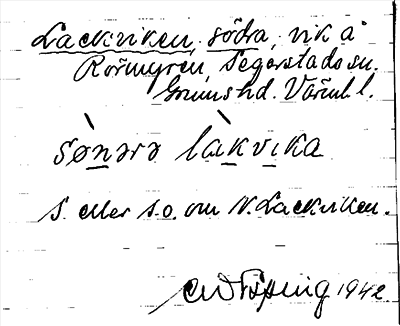 Lackviken, södra, vik å
Rörmyren, Segerstads sn.
Grums hd. Värml l.
sø̀nərə làkvika
S. eller s.o. om N. Lackviken.
1942